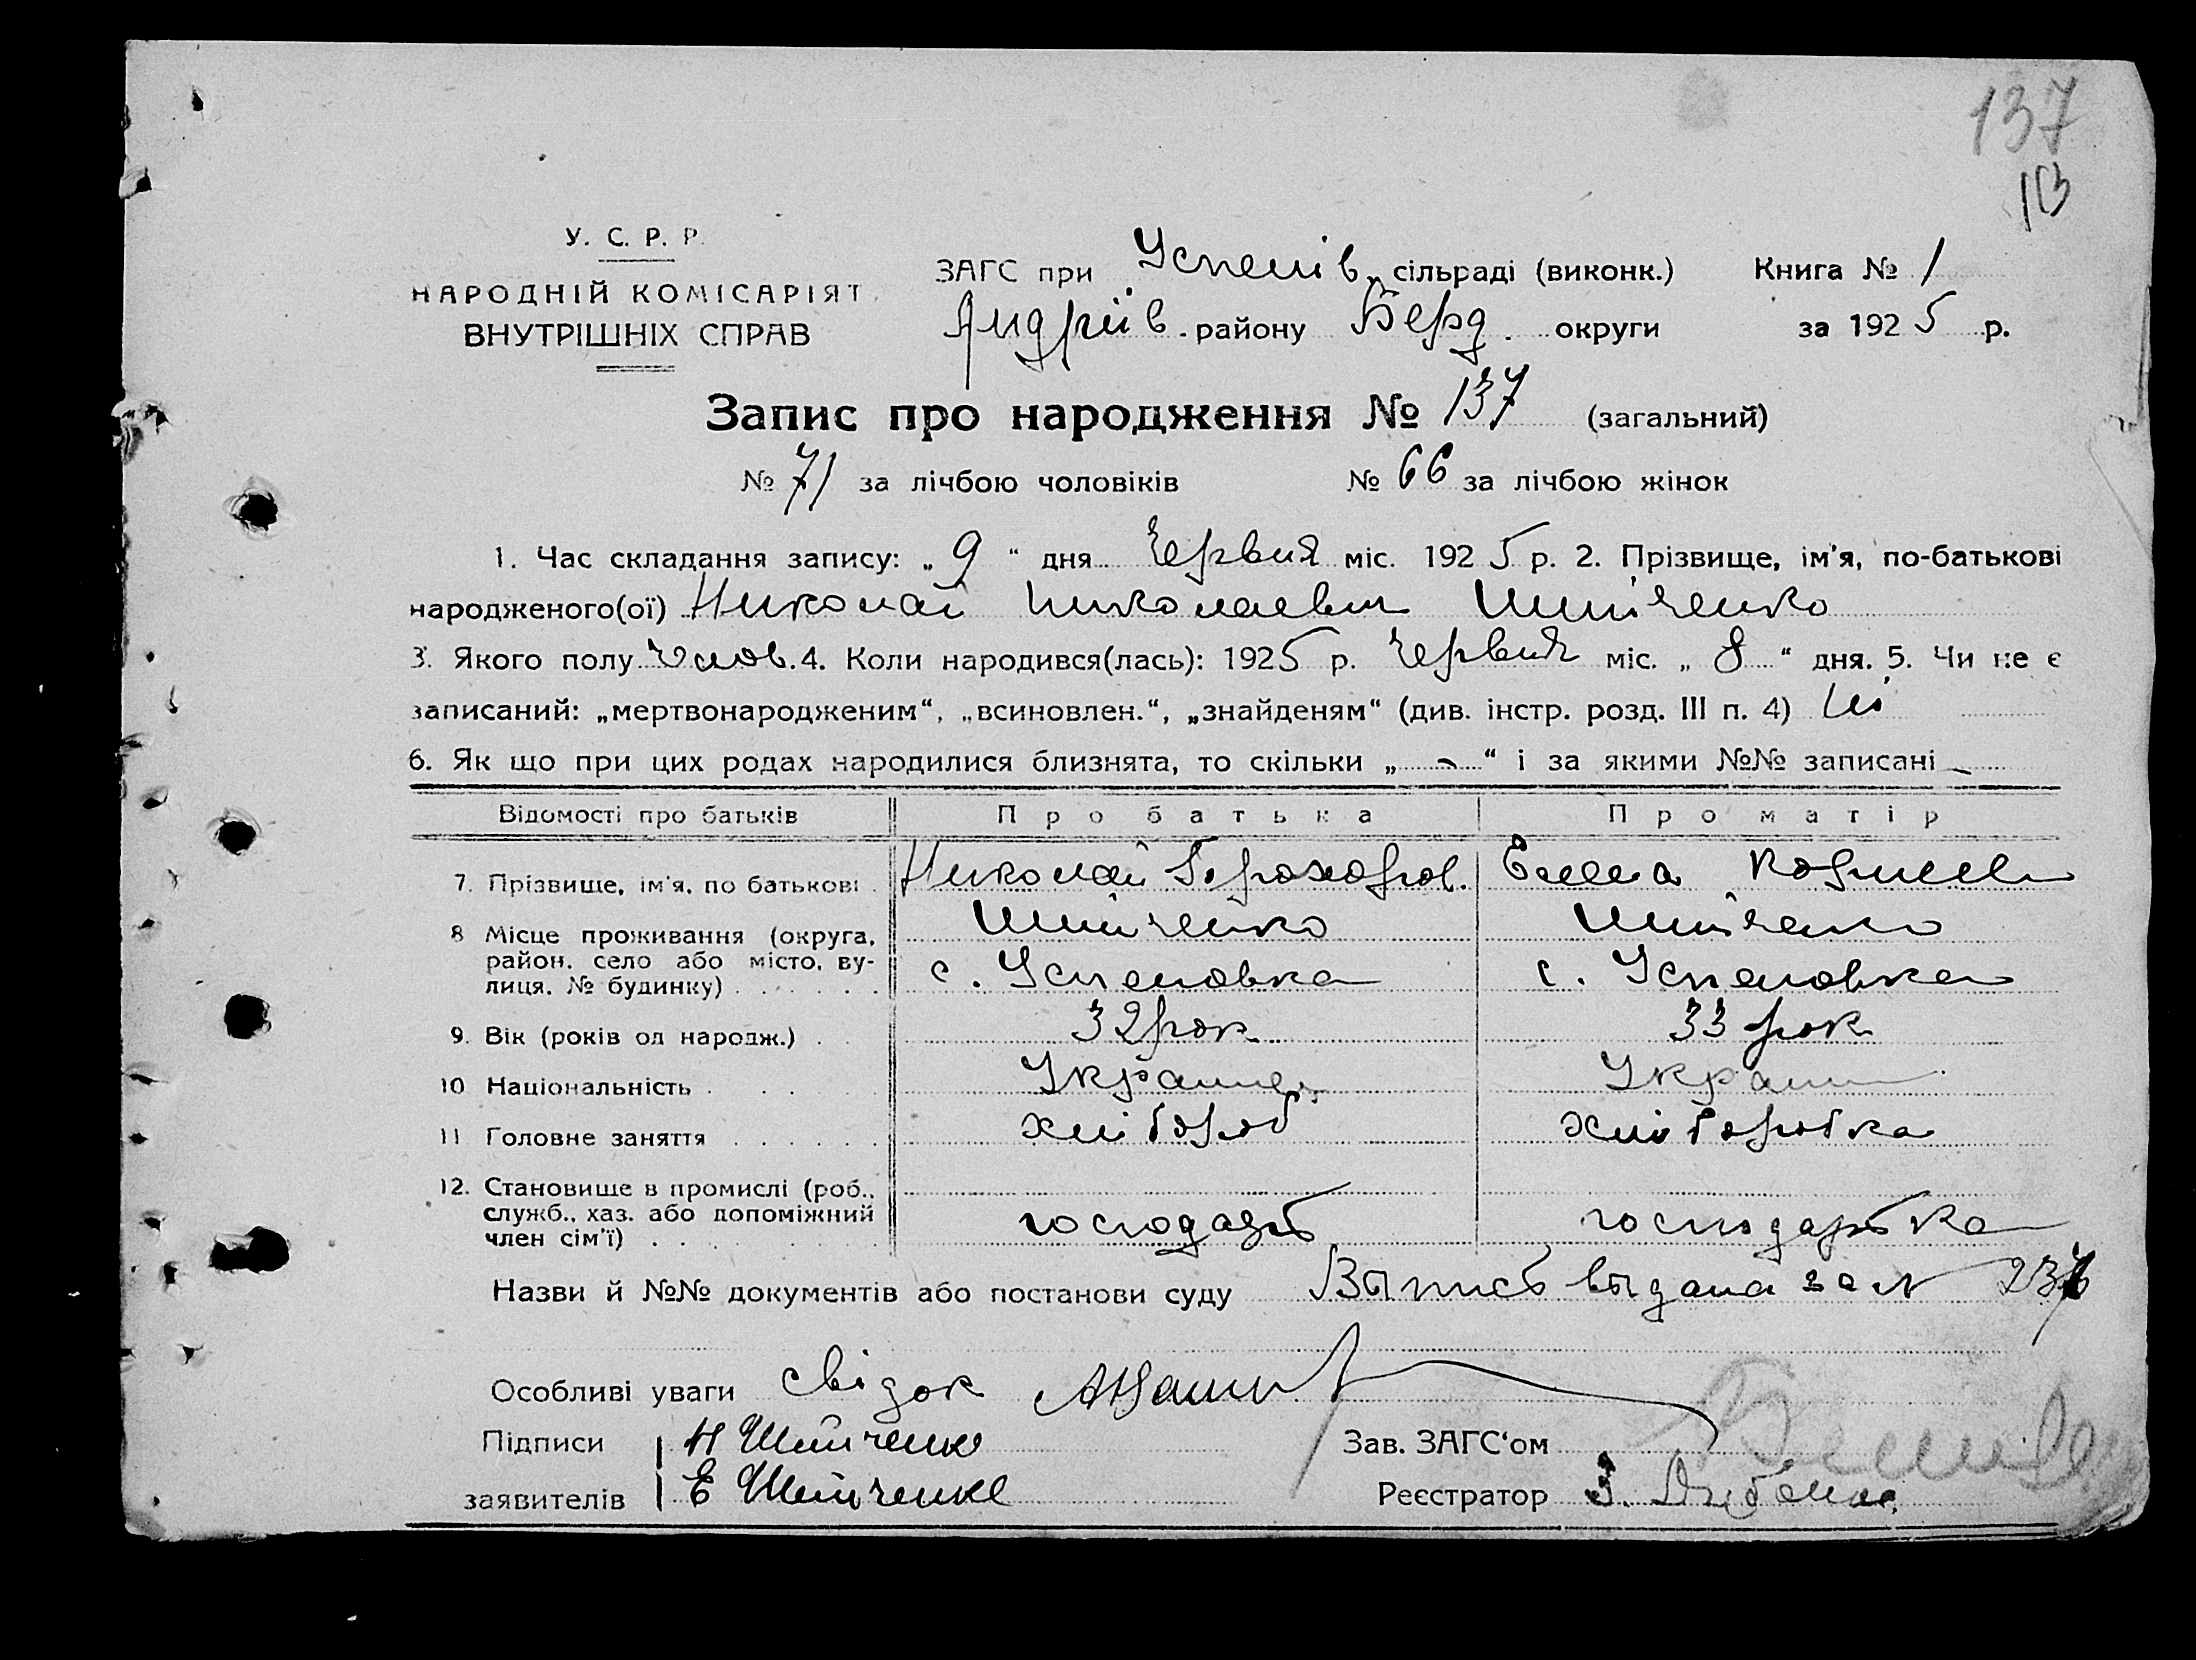 137
У. С. Р. Р.
НАРОДНІЙ КОМІСАРІЯТ
ВНУТРІШНІХ СПРАВ
ЗАГС при Успенів. сільраді (виконк.) Книга № 1
Андріїв. району Берд. округи за 1925 р.
Запис про народження № 137 (загальний)
№ 71 за лічбою чоловіків № 66 за лічбою жінок
1. Час складання запису: „9“ дня Червня міс. 1925 р. 2. Прізвище, ім'я, по-батькові
народженого(ої) Николай Николаевич Шпиченко
3. Якого полу Чолов. 4. Коли народився(лась): 1925 р. Червня міс. „8“ дня. 5. Чи не є
записаний: „мертвонародженим“, „всиновлен.“, „знайденям“ (див. інстр. розд. III п. 4) Ні
6. Як що при цих родах народилися близнята, то скільки „-“ і за якими №№ записані -
Відомості про батьків Про батька Про матір
7. Прізвище, ім'я, по батькові Николай Прохоров. Елена
Шпиченко Шпиченко
8 Місце проживання (округа, район, село або місто, вулиця, № будинку) с. Успеновка с. Успеновка
9. Вік (років од народж.) 32 рок 33 рок
10 Національність Украинец Украин
11 Головне заняття хлібороб хліборобка
12. Становище в промислі (роб., служб., хаз. або допоміжний член сім'ї) господарь господарька
Назви й №№ документів або постанови суду Выпись выдана за №
Особливі уваги свідок
Підписи Н Шпиченко Зав. ЗАГС'ом
заявителів Е Шпиченко Реєстратор З.